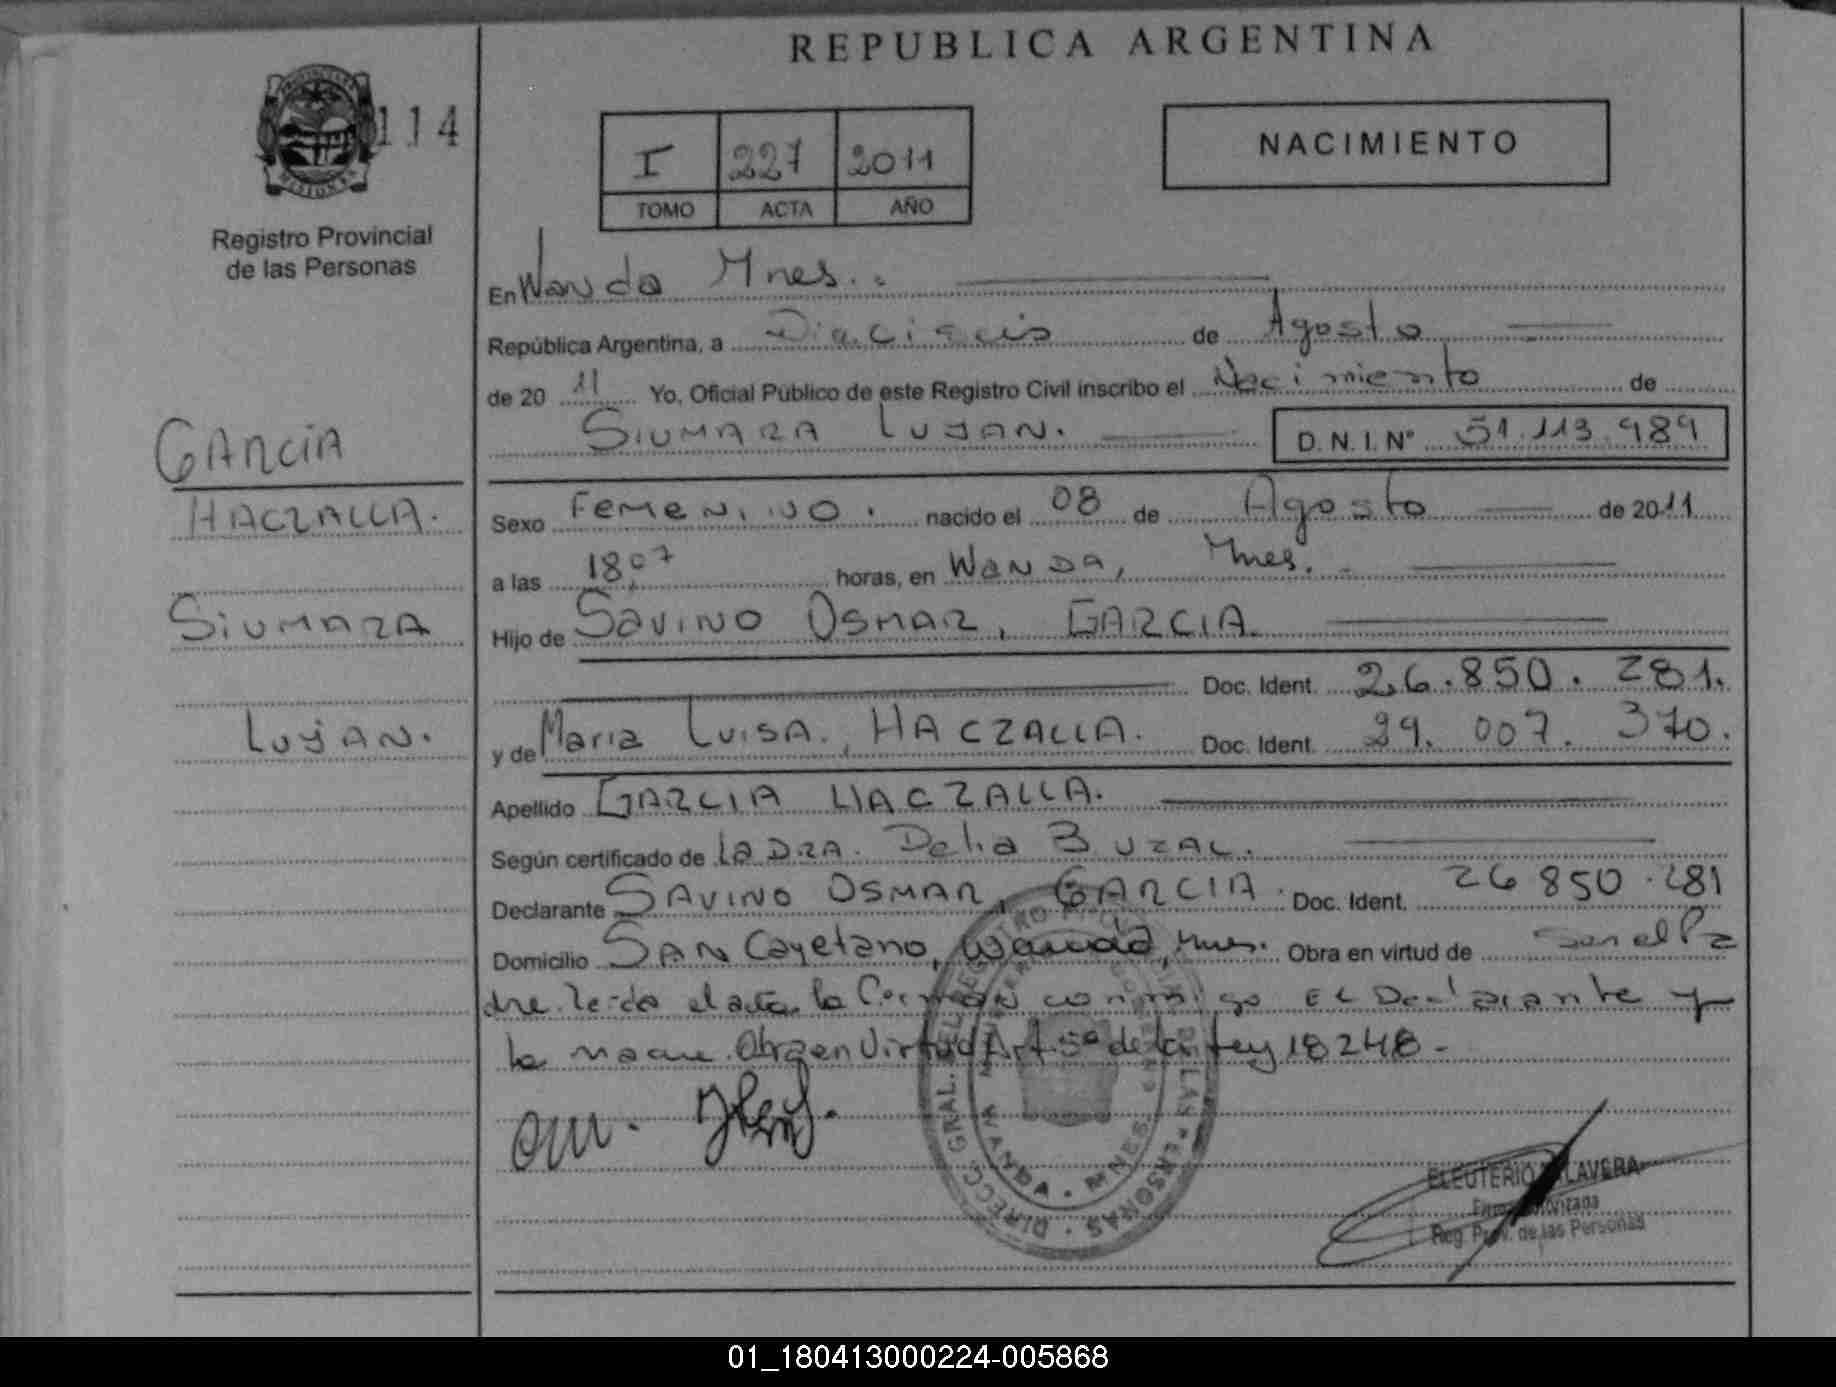 REPUBLICA ARGENTINA
114
I 227 2011
TOMO ACTA AÑO
NACIMIENTO
Registro Provincial
de las Personas
En Wanda Mnes.
República Argentina, a Dieciseis de Agosto
de 20 11 Yo, Oficial Público de este Registro Civil inscribo el Nacimiento de
SIUMARA LUJAN. D.N.I. Nº 51.113.989
GARCIA
HACZALLA.
SIUMARA
LUJAN.
Sexo FEMENINO. nacido el 08 de Agosto de 2011
a las 18,07 horas, en WANDA, Mnes.
Hijo de SAVINO OSMAR, GARCIA
Doc. Ident. 26.850.281.
y de Maria LUISA, HACZALLA. Doc. Ident. 29.007.370.
Apellido GARCIA HACZALLA.
Según certificado de LA DRA. Delia BUZAL.
Declarante SAVINO OSMAR, GARCIA. Doc. Ident. 26 850.281
Domicilio SAN Cayetano, Wanda, Mnes. Obra en virtud de Ser el Pa
dre. leida el acta la Firman conmigo EL Declarante y
la madre. Obra en Virtud Art 5º de la Ley 18248-
WANDA - MNES.
ELEUTERIO TALAVERA
Firma Autorizada
Reg. Prov. de las Personas
01_180413000224-005868